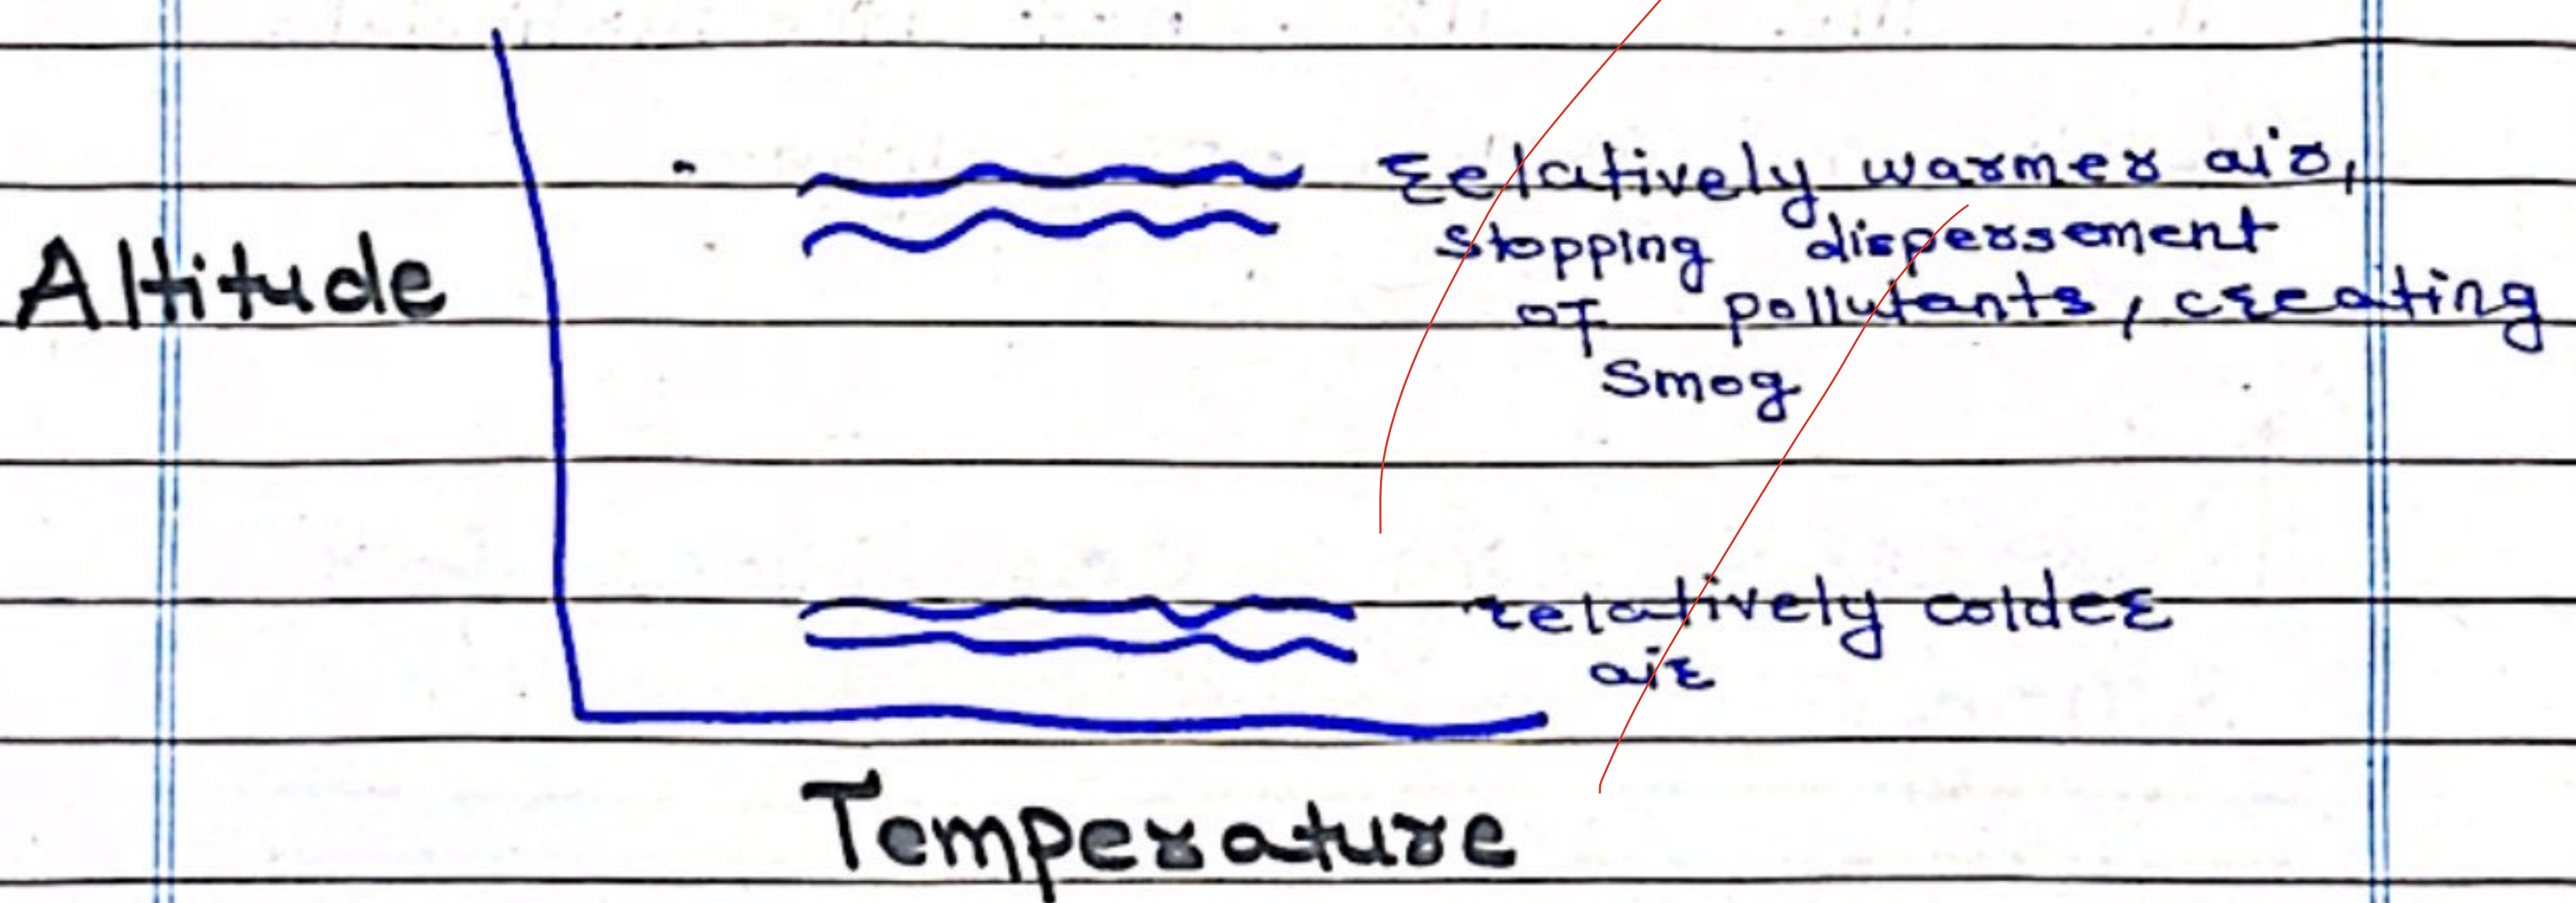 relatively warmer air,
stopping dispersement
Altitude
of pollutants, creating
smog
relatively colder
air
Temperature